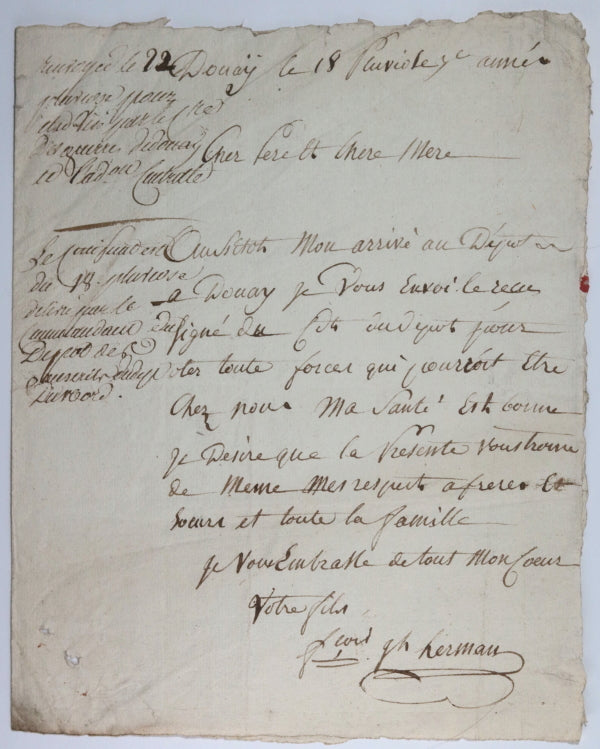 envoyé le 22
pluviose pour
par le
de Douay
Douaÿ le 18 Pluviose 7e année
Cher Pere Et Chere Mere
Le
du 18 pluviose
délivré par le
Commandant du
Depot des
Conscrits du dept
du Nord.
Aussitot Mon arrivé au Dépot
a Douay je Vous Envoi le recu
signé du Cdt du depot pour
oter toute forces qui pourroit Etre
Chez nous Ma Santé Est bonne
je Désire que la Présente vous trouve
de Meme Mes respects a freres Et
soeurs et toute la famille
je Vous Embrasse de tout Mon Coeur
Votre fils
fcois jh herman